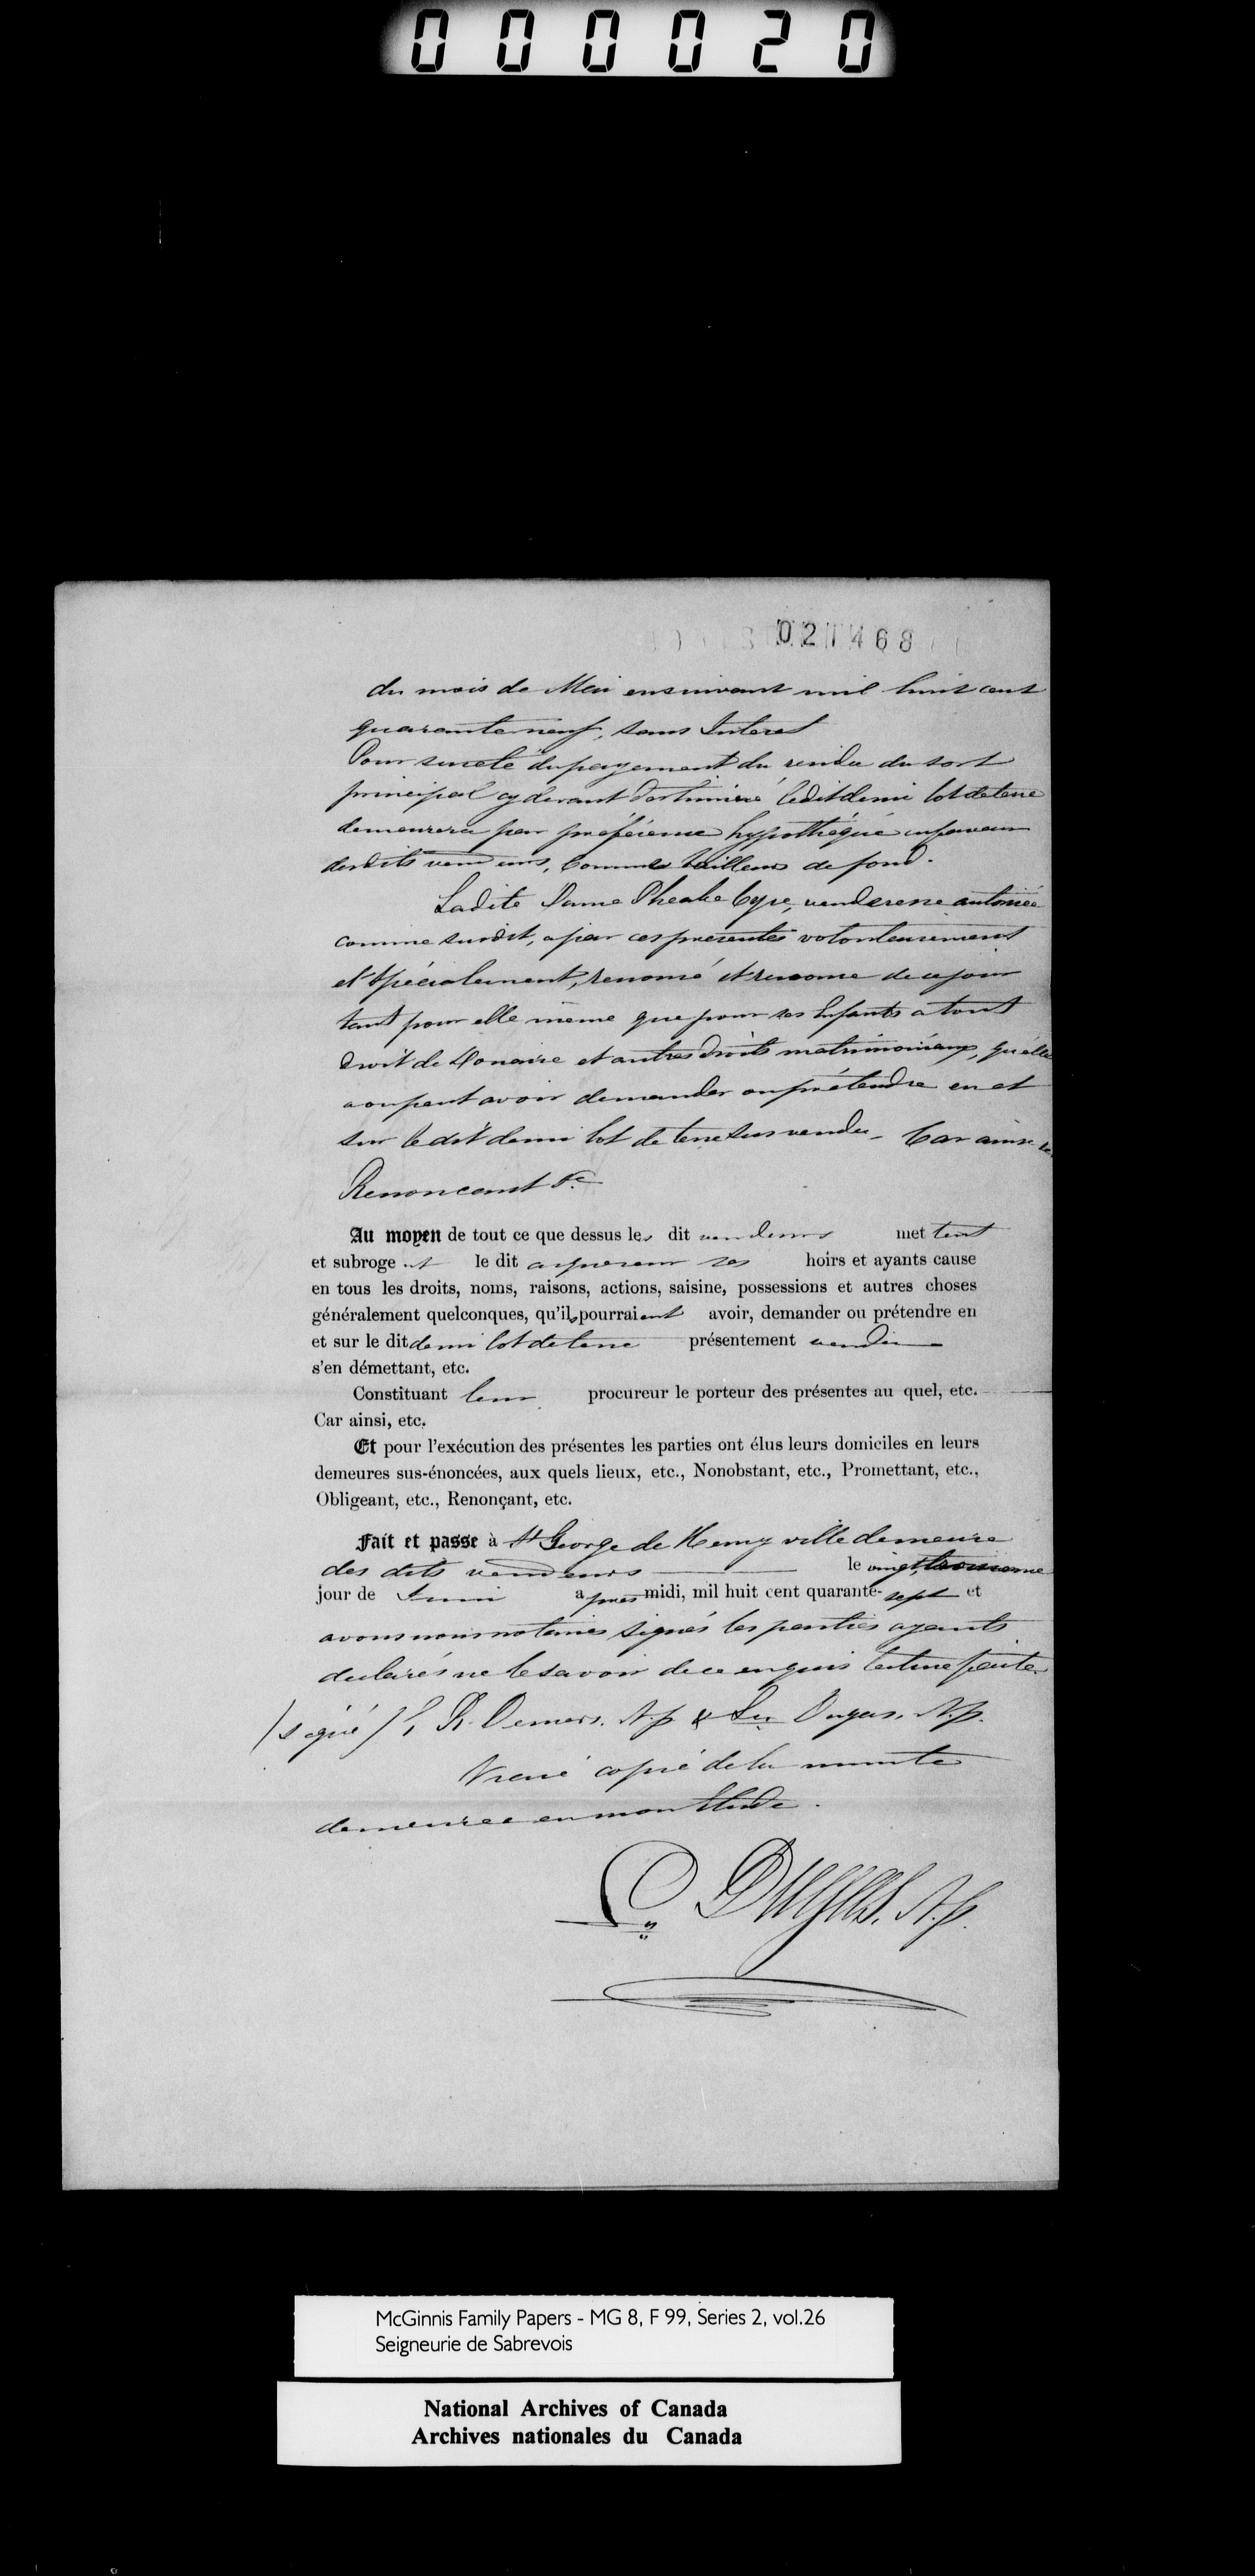 000020
021468
du mois de Mai ensuivant mil huit cent
quarante neuf, sans Interet
Pour sureté du payement du résidu du sort
principal cy devant ledit demi lot de terre
demeurera par préférence hypothéqué en faveur
desdits vendeurs, comme bailleurs de fond.
Ladite Dame Pheabe Cyre, venderesse autorisée
comme susdit, a par ces presentes volontairement
et Spécialement, renoncé et renonce de ce jour
tant pour elle même que pour ses Enfants a tout
Droit de Douaire et autres droits matrimoniaux, qu'elle
a ou peut avoir demander ou prétendre en et
sur le dit demi lot de terre sus vendu - Car ainsi
Renoncant &c
Au moyen de tout ce que dessus les dit vendeurs mettent
et subrogent le dit acquereur ses hoirs et ayants cause
en tous les droits, noms, raisons, actions, saisine, possessions et autres choses
généralement quelconques, qu'ils pourraient avoir, demander ou prétendre en
et sur le dit demi lot de terre présentement vendu
s'en démettant, etc.
Constituant leur procureur le porteur des présentes au quel, etc.
Car ainsi, etc.
Et pour l'exécution des présentes les parties ont élus leurs domiciles en leurs
demeures sus-énoncées, aux quels lieux, etc., Nonobstant, etc., Promettant, etc.,
Obligeant, etc., Renonçant, etc.
Fait et passe à St George de Henryville demeure
des dits vendeurs le vingt troisieme
jour de Juin apres midi, mil huit cent quarante-sept et
avons nous notaires signés les parties ayants
declarés ne le savoir de ce enquis lecture faite
(signé) P, R. Demers. N.p & Ls Dugas. N.p.
Vraie copie de la minute
demeuree en mon Etude.
Ls DUGAS. N.p.
McGinnis Family Papers - MG 8, F 99, Series 2, vol.26
Seigneurie de Sabrevois
National Archives of Canada
Archives nationales du Canada